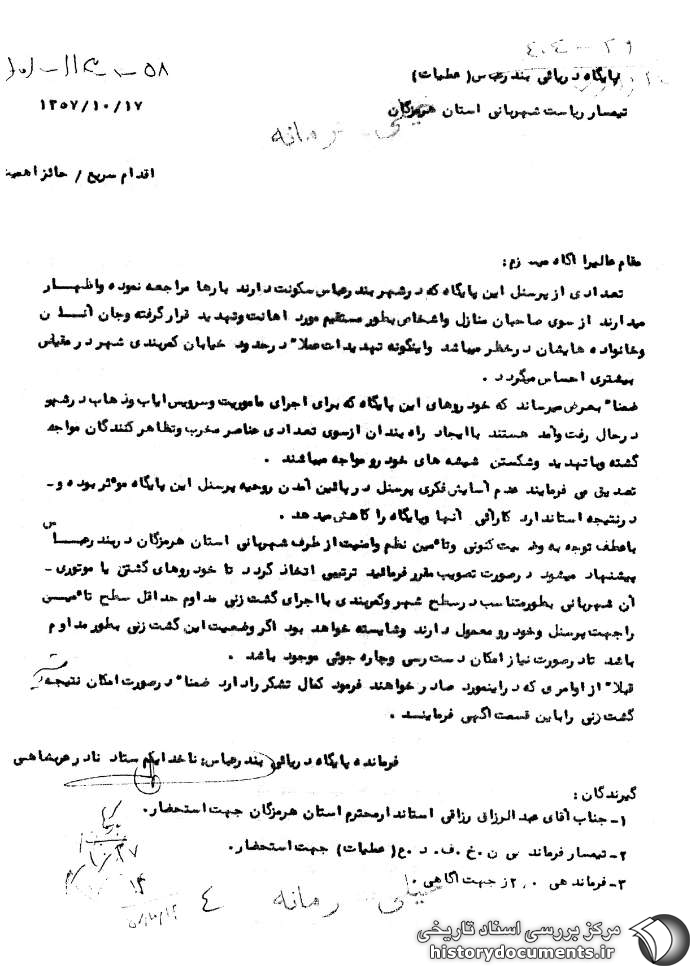 ۲۹ - ۴۰۴
پایگاه دریائی بندرعباس (عملیات)
۵۸-
۱۳۵۷/۱۰/۱۷
تیمسار ریاست شهربانی استان هرمزگان
خیلی محرمانه
اقدام سریع / حائز اهمیت
مقام عالیرا آگاه میسازم:
تعدادی از پرسنل این پایگاه که در شهر بندرعباس سکونت دارند بارها مراجعه نموده و اظهار
میدارند از سوی صاحبان منازل و اشخاص بطور مستقیم مورد اهانت و تهدید قرار گرفته و جان آنان
و خانواده هایشان در خطر میباشد و اینگونه تهدیدات عملاً در حدود خیابان کمربندی شهر در مقیاس
بیشتری احساس میگردد .
ضمناً بعرض میرساند که خودروهای این پایگاه که برای اجرای ماموریت و سرویس ایاب و ذهاب در شهر
در حال رفت و آمد هستند با ایجاد راه بندان از سوی تعدادی عناصر مخرب و تظاهر کنندگان مواجه
گشته و با تهدید و شکستن شیشه های خودرو مواجه میباشند .
تصدیق می فرمایند عدم آسایش فکری پرسنل در پائین آمدن روحیه پرسنل این پایگاه موثر بوده و -
در نتیجه استاندارد کارآئی آنها و پایگاه را کاهش میدهد .
با عطف توجه به وضعیت کنونی و تأمین نظم و امنیت از طرف شهربانی استان هرمزگان در بندرعباس
پیشنهاد میشود در صورت تصویب مقرر فرمائید ترتیبی اتخاذ گردد تا خودروهای گشتی یا موتوری -
آن شهربانی بطور متناسب در سطح شهر و کمربندی با اجرای گشت زنی مداوم حداقل سطح تأمین
را جهت پرسنل و خودرو معمول دارند و شایسته خواهد بود اگر وضعیت این گشت زنی بطور مداوم
باشد تا در صورت نیاز امکان دسترسی و چاره جوئی موجود باشد .
قبلاً از اوامری که در اینمورد صادر خواهند فرمود کمال تشکر را دارد ضمناً در صورت امکان نتیجه
گشت زنی را باین قسمت آگهی فرمایند .
فرمانده پایگاه دریائی بندرعباس: ناخدایکم ستاد نادر عربشاهی
گیرندگان :
۱- جناب آقای عبدالرزاق رزاقی استاندار محترم استان هرمزگان جهت استحضار.
۲- تیمسار فرماند هی ن.خ.ف.د.ع (عملیات) جهت استحضار.
۳- فرماندهی جهت آگاهی
خیلی محرمانه ۴
مرکز بررسی اسناد تاریخی
historydocuments.ir